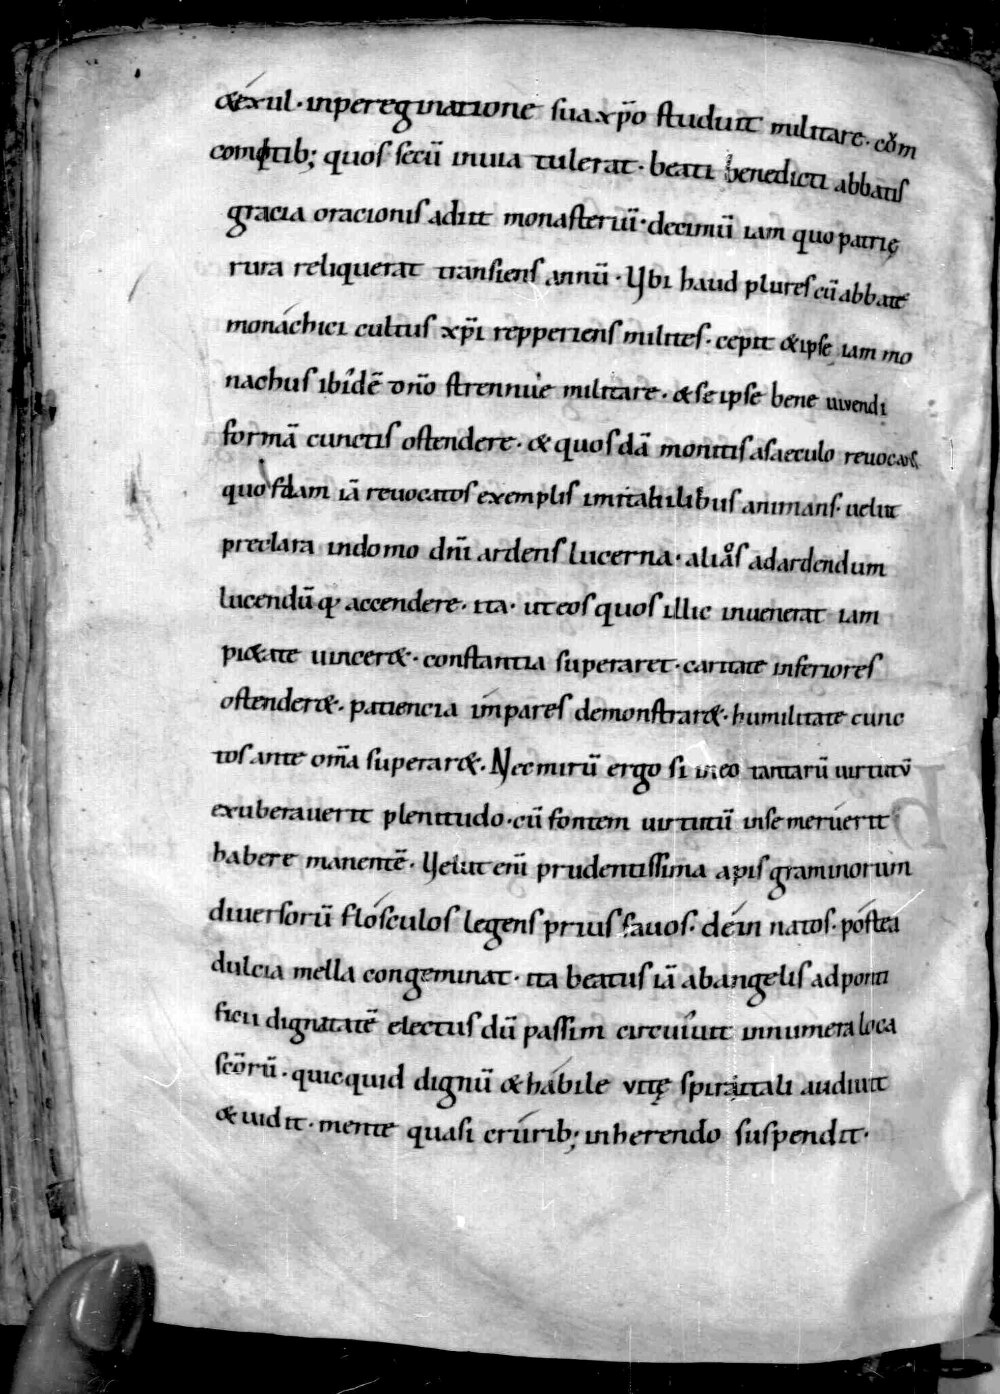 &éxul · inperegrinatione sua xp̄o studuit militare · cōm
comptib; quos secū inuia tulerat · beati benedicti abbatis
gracia oracionis adiit monasteriū · decimū iam quo patrię
rura reliquerat transiens annū · Vbi haud plures cū abbate
monáchici cultus xp̄i repperiens milites · cepit & ipse iam mo
nachus ibidē dn̄o strennuè militare · & se ipse bene uivendi
formā cunctis ostendere · & quosdā monitis asaeculo revocans
quosdam iā reuocatos exemplis imitabilibus animans · uelut
preclara indomo dn̄i ardens lucerna · alios adardendum
lucendūq; accendere · ita · ut eos quos illic inuenerat iam
pi&ate uincer& · constantia superaret · caritate inferiores
ostender& · patiencia ímpares demonstrar& · humilitate cunc
tos ante om̄a superar& · Nec mirū ergo si in eo tantarū uirtutū
exuberauerit plenitudo · cū fontem uirtutū inse merúerit
habere manentē · Velut eni̅ prudentissima apis graminorum
diuersorū flósculos legens prius fauos · déin natos · póstea
dulcia mella congeminat · ita beatus iā abangelis adponti
ficii dignitatē electus dū passim circuíuit innumera loca
sc̄orū · quicquid dignū & hábile vitę spiritali audiuit
& uidit · mente quasi crúrib; inherendo suspendit ·